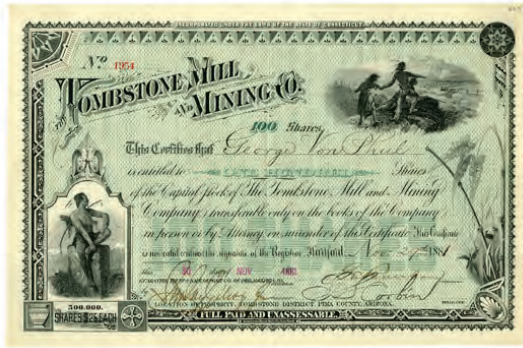 INCORPORATED UNDER THE LAWS OF THE STATE OF CONNECTICUT.
No. 1954
THE TOMBSTONE MILL
AND MINING CO.
100 Shares
This Certifies that George Von Phul
is entitled to ONE HUNDRED Shares
of the Capital Stock of The Tombstone Mill and Mining
Company, transferable only on the books of the Company
in person or by Attorney on surrender of this Certificate. This Certificate
is not valid without the signature of the Registrar. Hartford, Nov. 188
this 30 day of NOV 188
500,000.
SHARES $25 EACH
LOCATION OF PROPERTY, TOMBSTONE DISTRICT PIMA COUNTY, ARIZONA.
FULL PAID AND UNASSESSABLE.